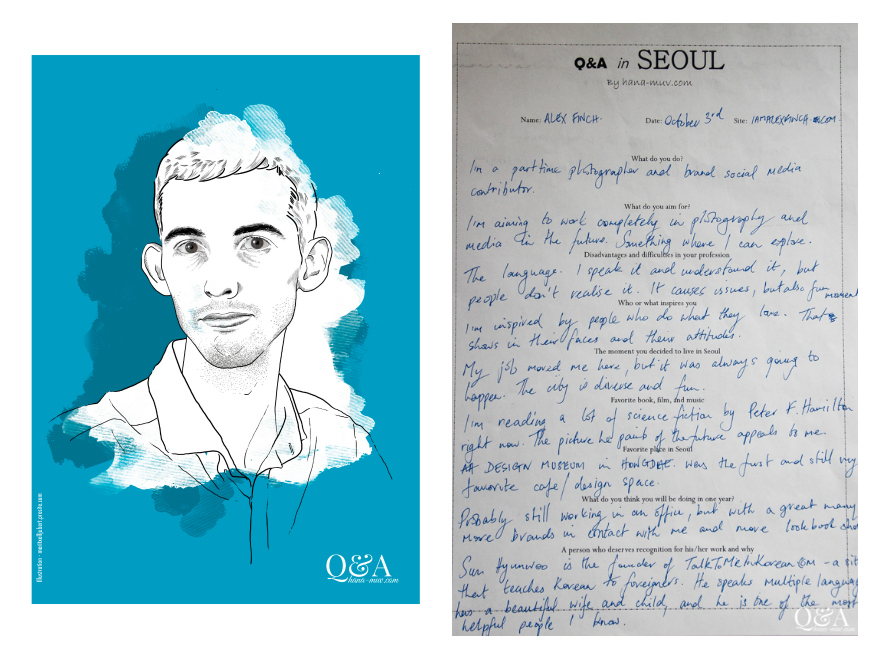 Illustration : martinedjahert.ensalte.com
Q&A
hana-muv.com
Q&A in SEOUL
By hana-muv.com
Name: ALEX FINCH. Date: October 3rd Site: IAMALEXFINCH.COM
What do you do?
I'm a part time photographer and brand social media
contributor.
What do you aim for?
I'm aiming to work completely in photography and
media in the future. Something where I can explore.
Disadvantages and difficulties in your profession
The language. I speak it and understand it, but
people don't realise it. It causes issues, but also fun moment
Who or what inspires you
I'm inspired by people who do what they love. That
shows in their faces and their attitudes.
The moment you decided to live in Seoul
My job moved me here, but it was always going to
happen. The city is diverse and fun.
Favorite book, film, and music
I'm reading a lot of science fiction by Peter F. Hamilton
right now. The picture he paints of the future appeals to me.
Favorite place in Seoul
AA DESIGN MUSEUM in HONGDAE. was the first and still my
favourite cafe/design space.
What do you think you will be doing in one year?
Probably still working in an office, but with a great many
more brands in contact with me and more lookbook
A person who deserves recognition for his/her work and why
Sun Hyunwoo is the founder of TalkToMeInKorean.com - a sit
that teaches Korean to foreigners. He speaks multiple languag
has a beautiful wife and child, and he is one of the most
helpful people I know.
Q&A
hana-muv.com